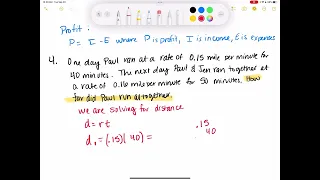 Profit.
P = I - E where P is profit, I is income, E is expenses
4. One day Paul ran at a rate of 0.15 mile per minute for
40 minutes. The next day Paul & Jen ran together at
a rate of 0.16 mile per minute for 50 minutes. How
far did Paul run altogether.
We are solving for distance
d = rt
d₁ = (.15)(40) =
.15
40